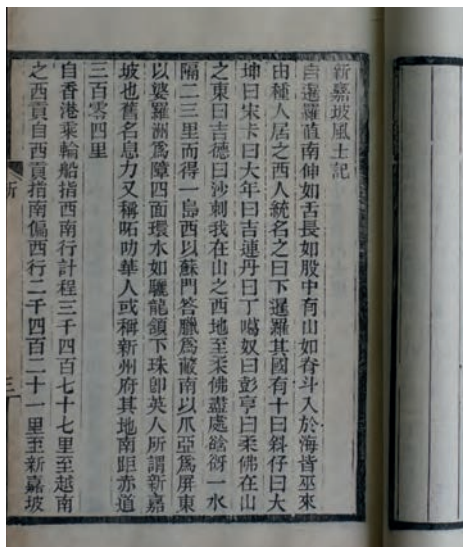 新嘉坡風土記
自暹羅直南伸如舌長如股中有山如脊斗入於海皆巫來
由種人居之西人統名之曰下暹羅其國有十曰斜仔曰大
坤曰宋卡曰大年曰吉連丹曰丁噶奴曰彭亨曰柔佛在山
之東曰吉德曰沙剌我在山之西地至柔佛盡處谽谺一水
隔二三里而得一島西以蘇門答臘爲蔽南以爪亞爲屏東
以婆羅洲爲障四面環水如驪龍頷下珠卽英人所謂新嘉
坡也舊名息力又稱㗌叻華人或稱新州府其地南距赤道
三百零四里
自香港乘輪船指西南行計程三千四百七十七里至越南
之西貢自西貢指南偏西行二千四百二十一里至新嘉坡
新
三